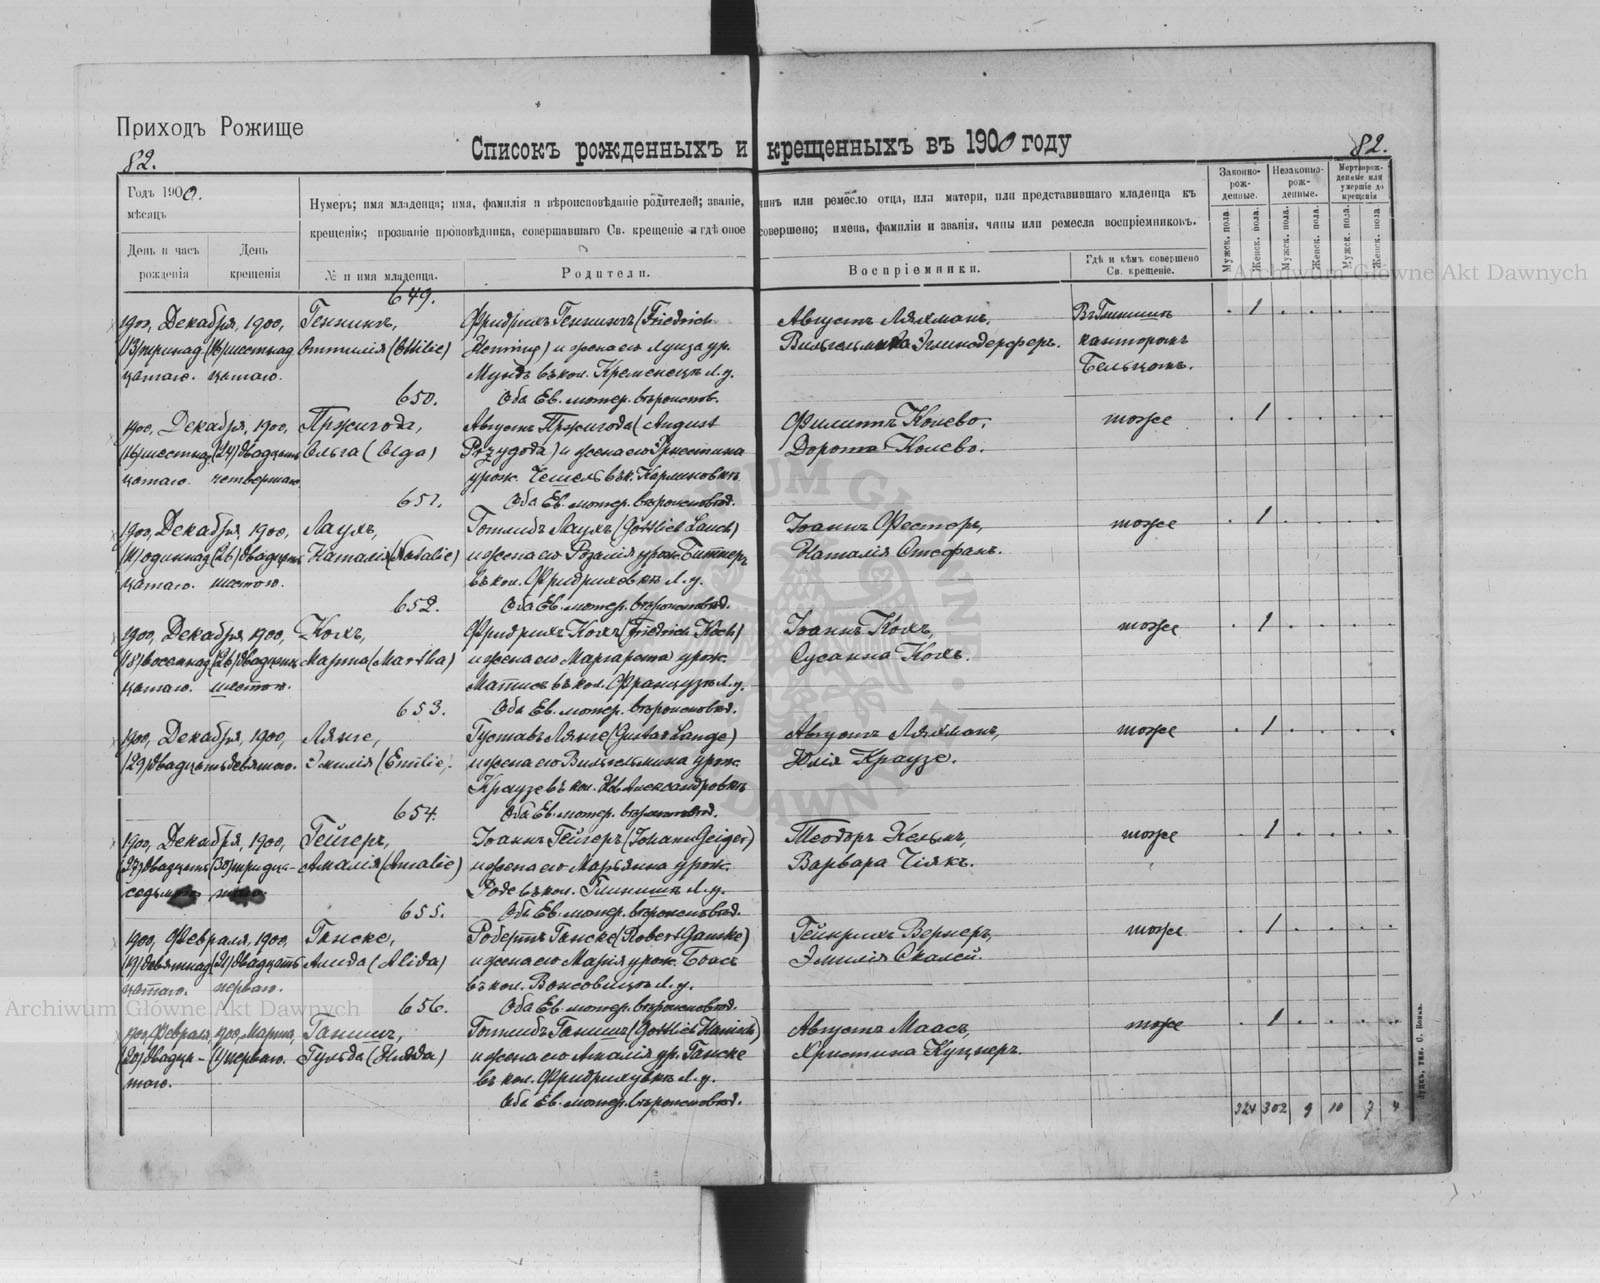 Приходъ Рожище
82.
Списокъ рожденныхъ и крещенныхъ въ 1900 году
82.
Годъ 1900.
мѣсяцъ
День и часъ рожденія
День крещенія
Нумеръ; имя младенца; имя, фамилія и вѣроисповѣданіе родителей; званіе, чинъ или ремесло отца, или матери, или представившаго младенца къ
крещенію; прозваніе проповѣдника, совершавшаго Св. крещеніе и гдѣ оное совершено; имена, фамиліи и званія, чины или ремесла воспріемниковъ.
№ и имя младенца.
Родители.
Воспріемники.
Гдѣ и кѣмъ совершено Св. крещеніе.
Законно-рож-денные.
Незаконно-рож-денные.
Мертворож-денные или умершіе до крещенія
Мужск. пола.
Женск. пола.
Мужск. пола.
Женск. пола.
Мужск. пола.
Женск. пола.
649.
1900, Декабря, 1900, Геннинъ, Фридрихъ Геннингъ (Friedrich Августъ Ляхманъ, 1
(13) тринад (16) шестнад Оттилія (Ottilie) Henning) и жена его Луиза ур. канторомъ
цатаго. цатаго. въ кол. Кременецъ Л. у. Бельцомъ.
650. Оба Ев. лютер. вѣроиспов.
1900, Декабря, 1900, Пржигода, Августъ Пржигода (August Филиппъ Колево, тоже 1
(16) шестнад (24) двадцать Ольга (Olga) и жена его Христина Доротея Колево.
цатаго. четвертаго. урож.
651. Оба Ев. лютер. вѣроисповѣд.
1900, Декабря, 1900, Лаухъ, Готлибъ Лаухъ (Gottlieb Lauch) Іоаннъ Фесторъ, тоже 1
(11) одиннад (26) двадцать Наталія (Natalie) и жена его Розалія урож. Биттнеръ Наталія Стефанъ.
цатаго. шестого. въ кол. Фридриховкѣ Л. у.
652. Оба Ев. лютер. вѣроисповѣд.
1900, Декабря, 1900, Кохъ, Фридрихъ Кохъ (Friedrich Koch) Іоаннъ Кохъ, тоже 1
(18) восемнад (26) двадцать Марта (Martha) и жена его Маргарета урож. Сусанна Кохъ.
цатаго. шестого. въ кол. Л. у.
653. Оба Ев. лютер. вѣроисповѣд.
1900, Декабря, 1900, Лянге, Густавъ Лянге (Gustav Lange) Августъ Ляхманъ, тоже 1
(29) двадцать девятаго. Эмилія (Emilie), и жена его Вильгельмина урож. Юлія Краузе.
Краузе въ кол. Александровкѣ
654. Оба Ев. лютер. вѣроисповѣд.
1900, Декабря, 1900, Гейгеръ, Іоаннъ Гейгеръ (Johann Geiger) Теодоръ Кельмъ, тоже 1
(27) двадцать (30) тридца- Амалія (Amalie) и жена его Марьянна урож. Варвара
Роде въ кол. Л. у.
655. Оба Ев. лютер. вѣроисповѣд.
1900, Февраля, 1900, Ганске, Робертъ Ганске (Robert Ganske) Гейнрихъ Вернеръ, тоже 1
(19) девятнад (21) двадцать Алида (Alida) и жена его Марія урож. Эмилія Скалей.
цатаго. перваго. въ кол. Л. у.
656. Оба Ев. лютер. вѣроисповѣд.
1900, Февраля, 1900, Марта, Ганишъ, Готлибъ Ганишъ (Gottlieb Hanisch) Августъ Маасъ, тоже 1
(20) двадца- (1) перваго. Гульда (Hulda) и жена его Амалія ур. Ганске Христина Куцнеръ.
таго. въ кол. Л. у.
Оба Ев. лютер. вѣроисповѣд.
324 302 9 10 7 4
Archiwum Główne Akt Dawnych
Archiwum Główne Akt Dawnych